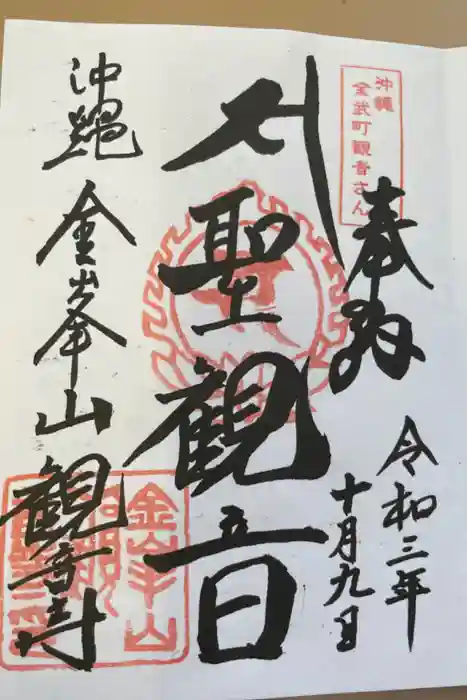 沖縄
金武町観音さん
奉納
令和三年
十月九日
聖観音
沖縄
金峯山
観音寺
金峯山